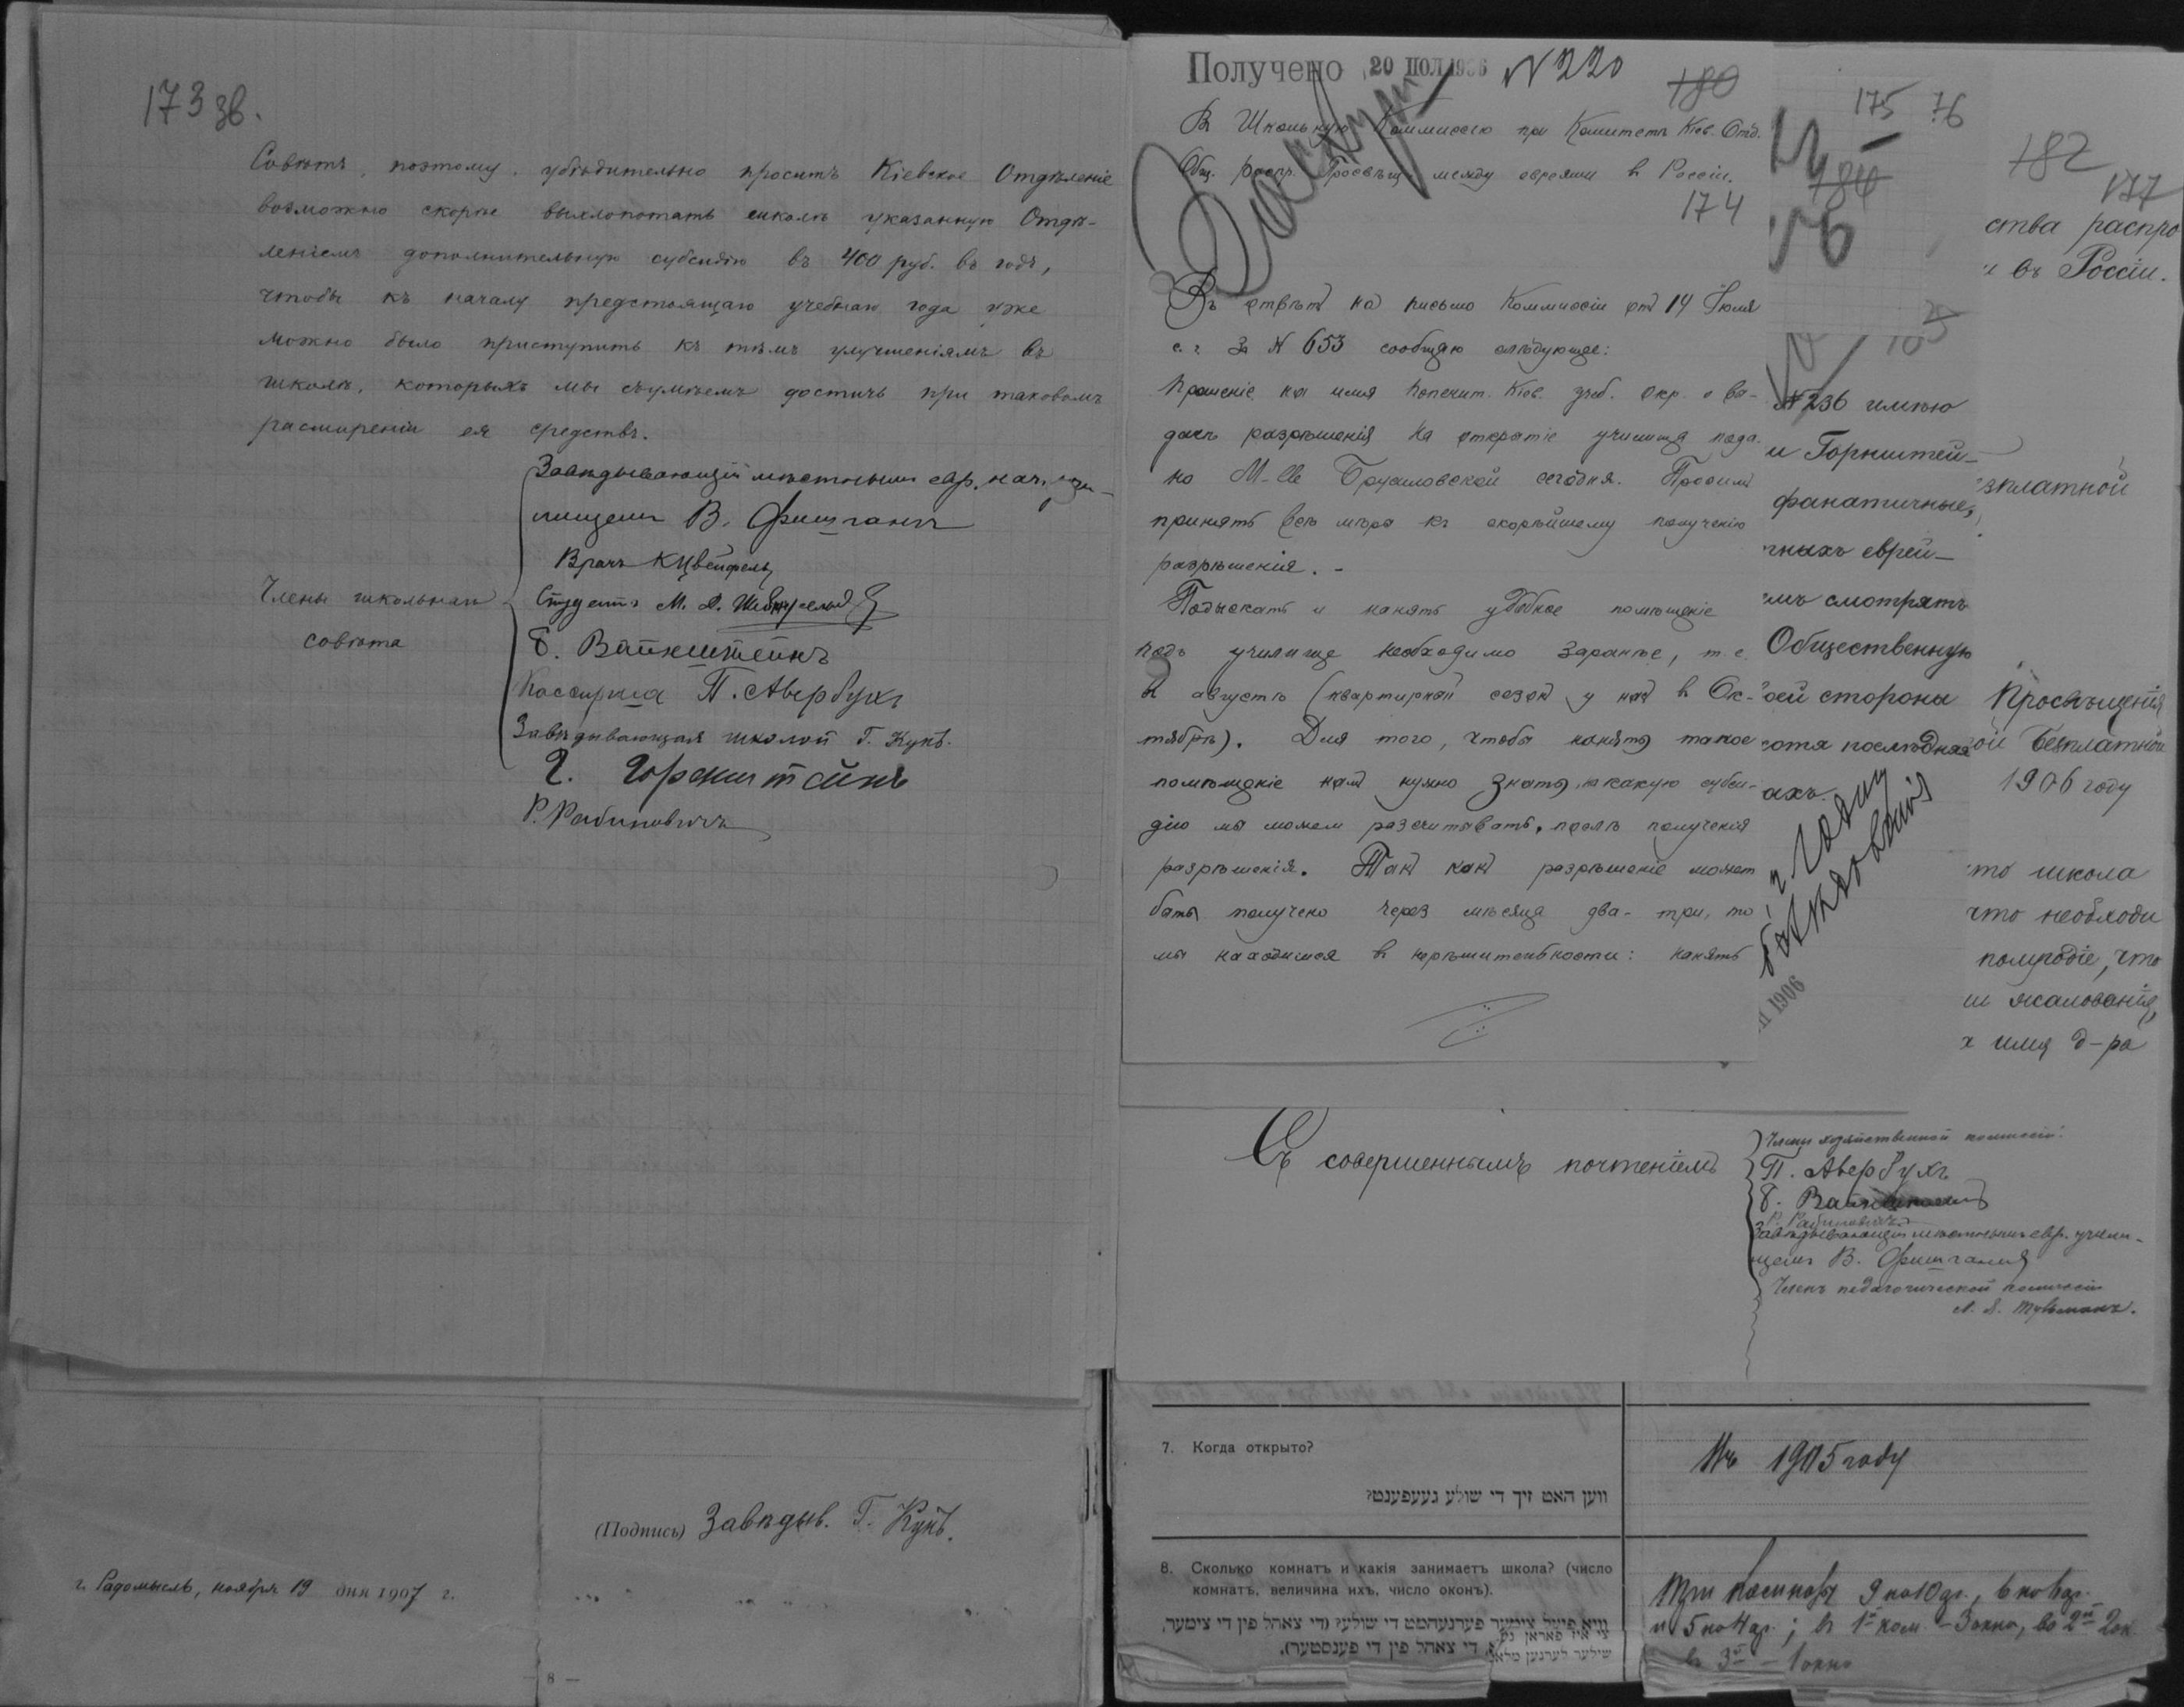 173 зв.
Совѣтъ, поэтому, убѣдительно проситъ Кіевское Отдѣленіе
возможно скорѣе выхлопотать школѣ указанную Отдѣ-
леніемъ дополнительную субсидію въ 400 руб. въ годъ,
чтобы къ началу предстоящаго учебнаго года уже
можно было приступить къ тѣмъ улучшеніямъ въ
школѣ, которыхъ мы съумѣемъ достичь при таковомъ
расширеніи ея средствъ.
Завѣдывающій мѣстнымъ евр. нач. учи-
лищемъ В. Фишманъ
Врачъ
Члены школьнаго
совѣта
Студентъ М. Д.
Б. Вайнштейнъ
Кассирша П. Авербухъ
Завѣдывающая школой Г. Купъ.
Г. Горенштейнъ
Р. Рабиновичъ
(Подпись) Завѣдыв. Г. Купъ.
г. Радомысль, ноября 19 дня 1907 г.
8 —
Получено 20 ІЮЛ 1906 N 220
180
Въ Школьную Коммиссію при Комитетѣ Кіев. Отд.
Общ. распр. Просвѣщ. между евреями въ Россіи.
174
Въ отвѣтъ на письмо Коммиссіи отъ 14 Іюля
с. г. за N 653 сообщаю слѣдующее:
Прошеніе на имя Попечит. Кіев. учеб. окр. о вы-
дачѣ разрѣшенія на открытіе училища пода-
но M-lle Брусиловской сегодня. Просимъ
принять всѣ мѣры къ скорѣйшему полученію
разрѣшенія. –
Подыскать и нанять удобное помѣщеніе
подъ училище необходимо заранѣе, т. е.
въ августѣ (квартирный сезонъ у насъ въ Ок-
тябрѣ). Для того, чтобы нанять такое
помѣщеніе намъ нужно знать, на какую субси-
дію мы можемъ разсчитывать, послѣ полученія
разрѣшенія. Такъ какъ разрѣшеніе можетъ
быть получено черезъ мѣсяца два-три, то
мы находимся въ нерѣшительности: нанять
175
76
184
N 236 имѣю
и Горнштей-
фанатичные,
ныхъ еврей-
мъ смотрятъ
Общественную
оей стороны
отя послѣдняя
ахъ.
1906
182
177
ства распро
и въ Россіи.
зплатной
Просвѣщенія
ой Безплатной
1906 году
что школа
что необходи
полугодіе, что
ии жалованія,
х имя д-ра
Съ совершеннымъ почтеніемъ
Члены хозяйственной комиссіи:
П. Авербухъ
Б. Вайнштейнъ
Р. Рабиновичъ
Завѣдывающій мѣстнымъ евр. учили-
щемъ В. Фишманъ
Членъ педагогической комиссіи
7. Когда открыто?
Въ 1905 году
ווען האט זיך די שולע געעפענט?
8. Сколько комнатъ и какія занимаетъ школа? (число
комнатъ, величина ихъ, число оконъ).
Три комнаты 9 на 10 ар., 6 на 6 ар.
и 5 на 4 ар.; въ 1й ком – 3 окна, во 2й 2 ок
въ 3й – 1 окно
וויא פיעל צימער פערנעהמט די שולע? (די צאהל פון די צימער,
די צאהל פין די פענסטער).